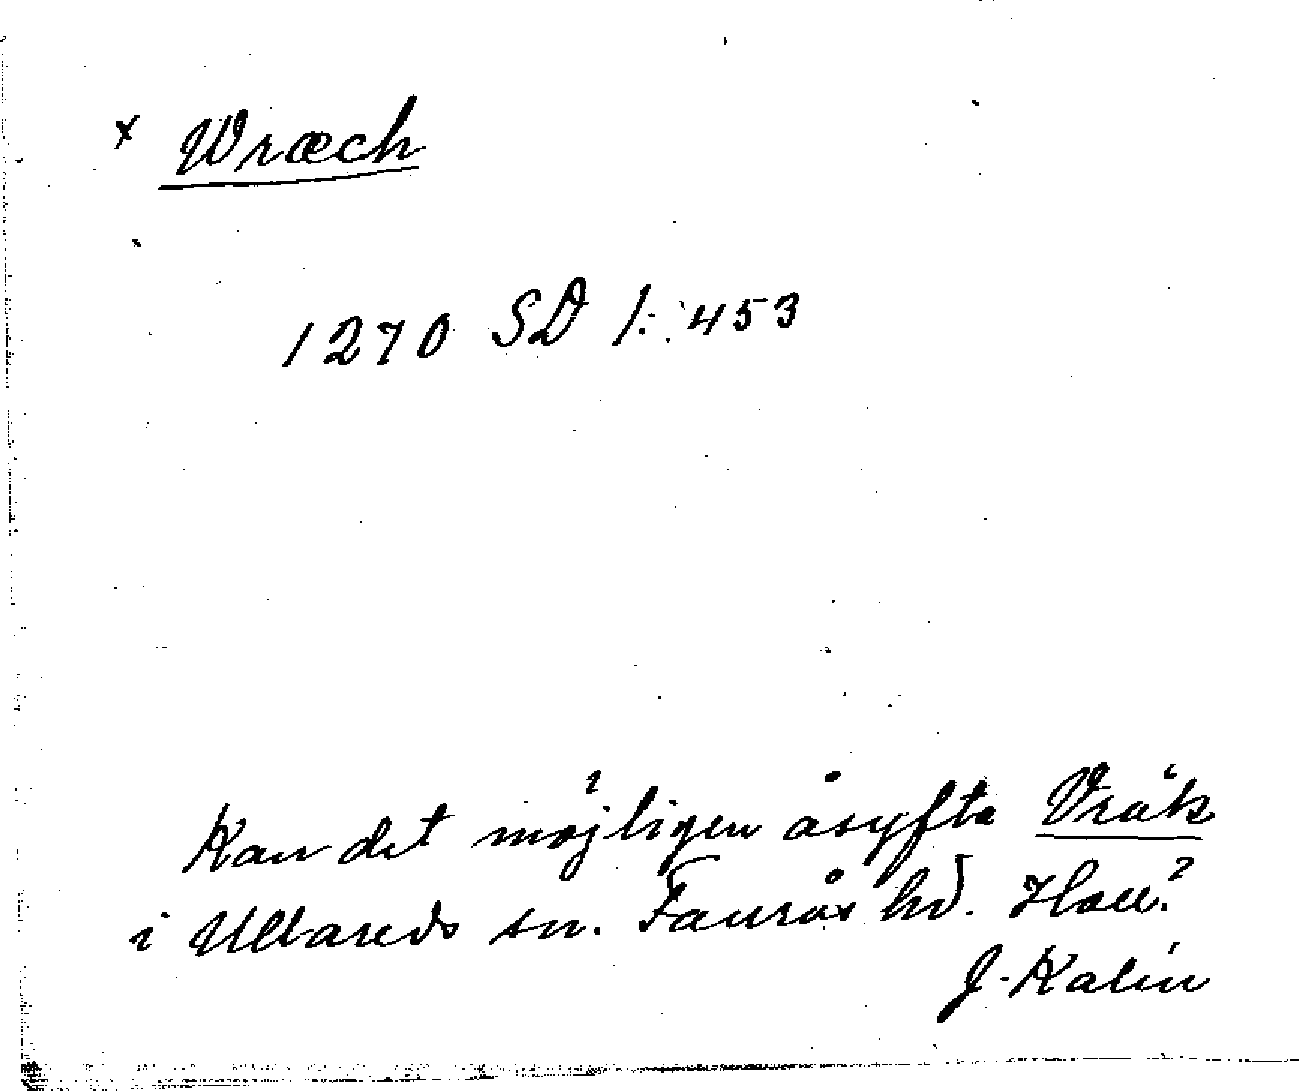 x Wræch
1270 SD 1: 453
Kan det möjligen åsyfta Vräk
i Ullareds sn. Faurås hd. Hall?
J. Kalén